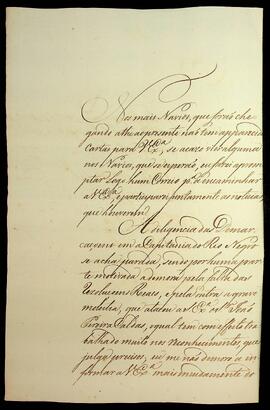 Nos mais Navios, que forão che
gando athe ao presente não tem apparecido
cartas para V. Exa, se acaso vier alguma
nos Navios, que se esperão, eu farei aprom
ptar logo hum Correio pa. lá encaminhar
a V. Exa, e participar juntamente as noticias,
que houverem.
A diligencia das Demar
caçoens em a Capitania do Rio Negro
se acha parada, sendo por huma par
te motivada a demora pela falta das
Resoluçoens Reais, e pela outra a grave
molestia, que atacou ao Exmo Sr. João
Pereira Caldas, o qual tem com effeito tra
balhado muito nos reconhecimentos, que
julga precisos, eu me não demoro a in
formar a V. Exa mais miudamente do